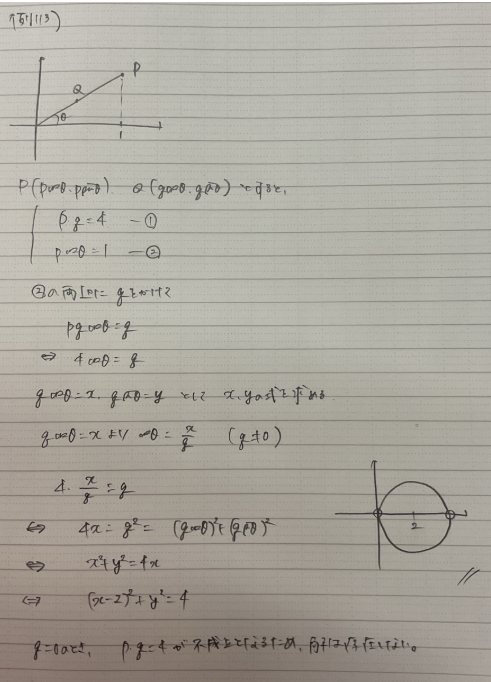 例113)
P
Q
θ
1
P(pcosθ, psinθ) Q(qcosθ, qsinθ) とすると、
p・q=4 ―①
pcosθ=1 ―②
②の両辺に qをかけて
pqcosθ=q
⇔ 4cosθ=q
qcosθ=x, qsinθ=y として x, yの式を求める.
qcosθ=x より cosθ=x/q (q≠0)
4・x/q=q
⇔ 4x=q²=(qcosθ)²+(qsinθ)²
⇔ x²+y²=4x
⇔ (x-2)²+y²=4
2
q=0のとき, p・q=4が不成立となるため、原点は